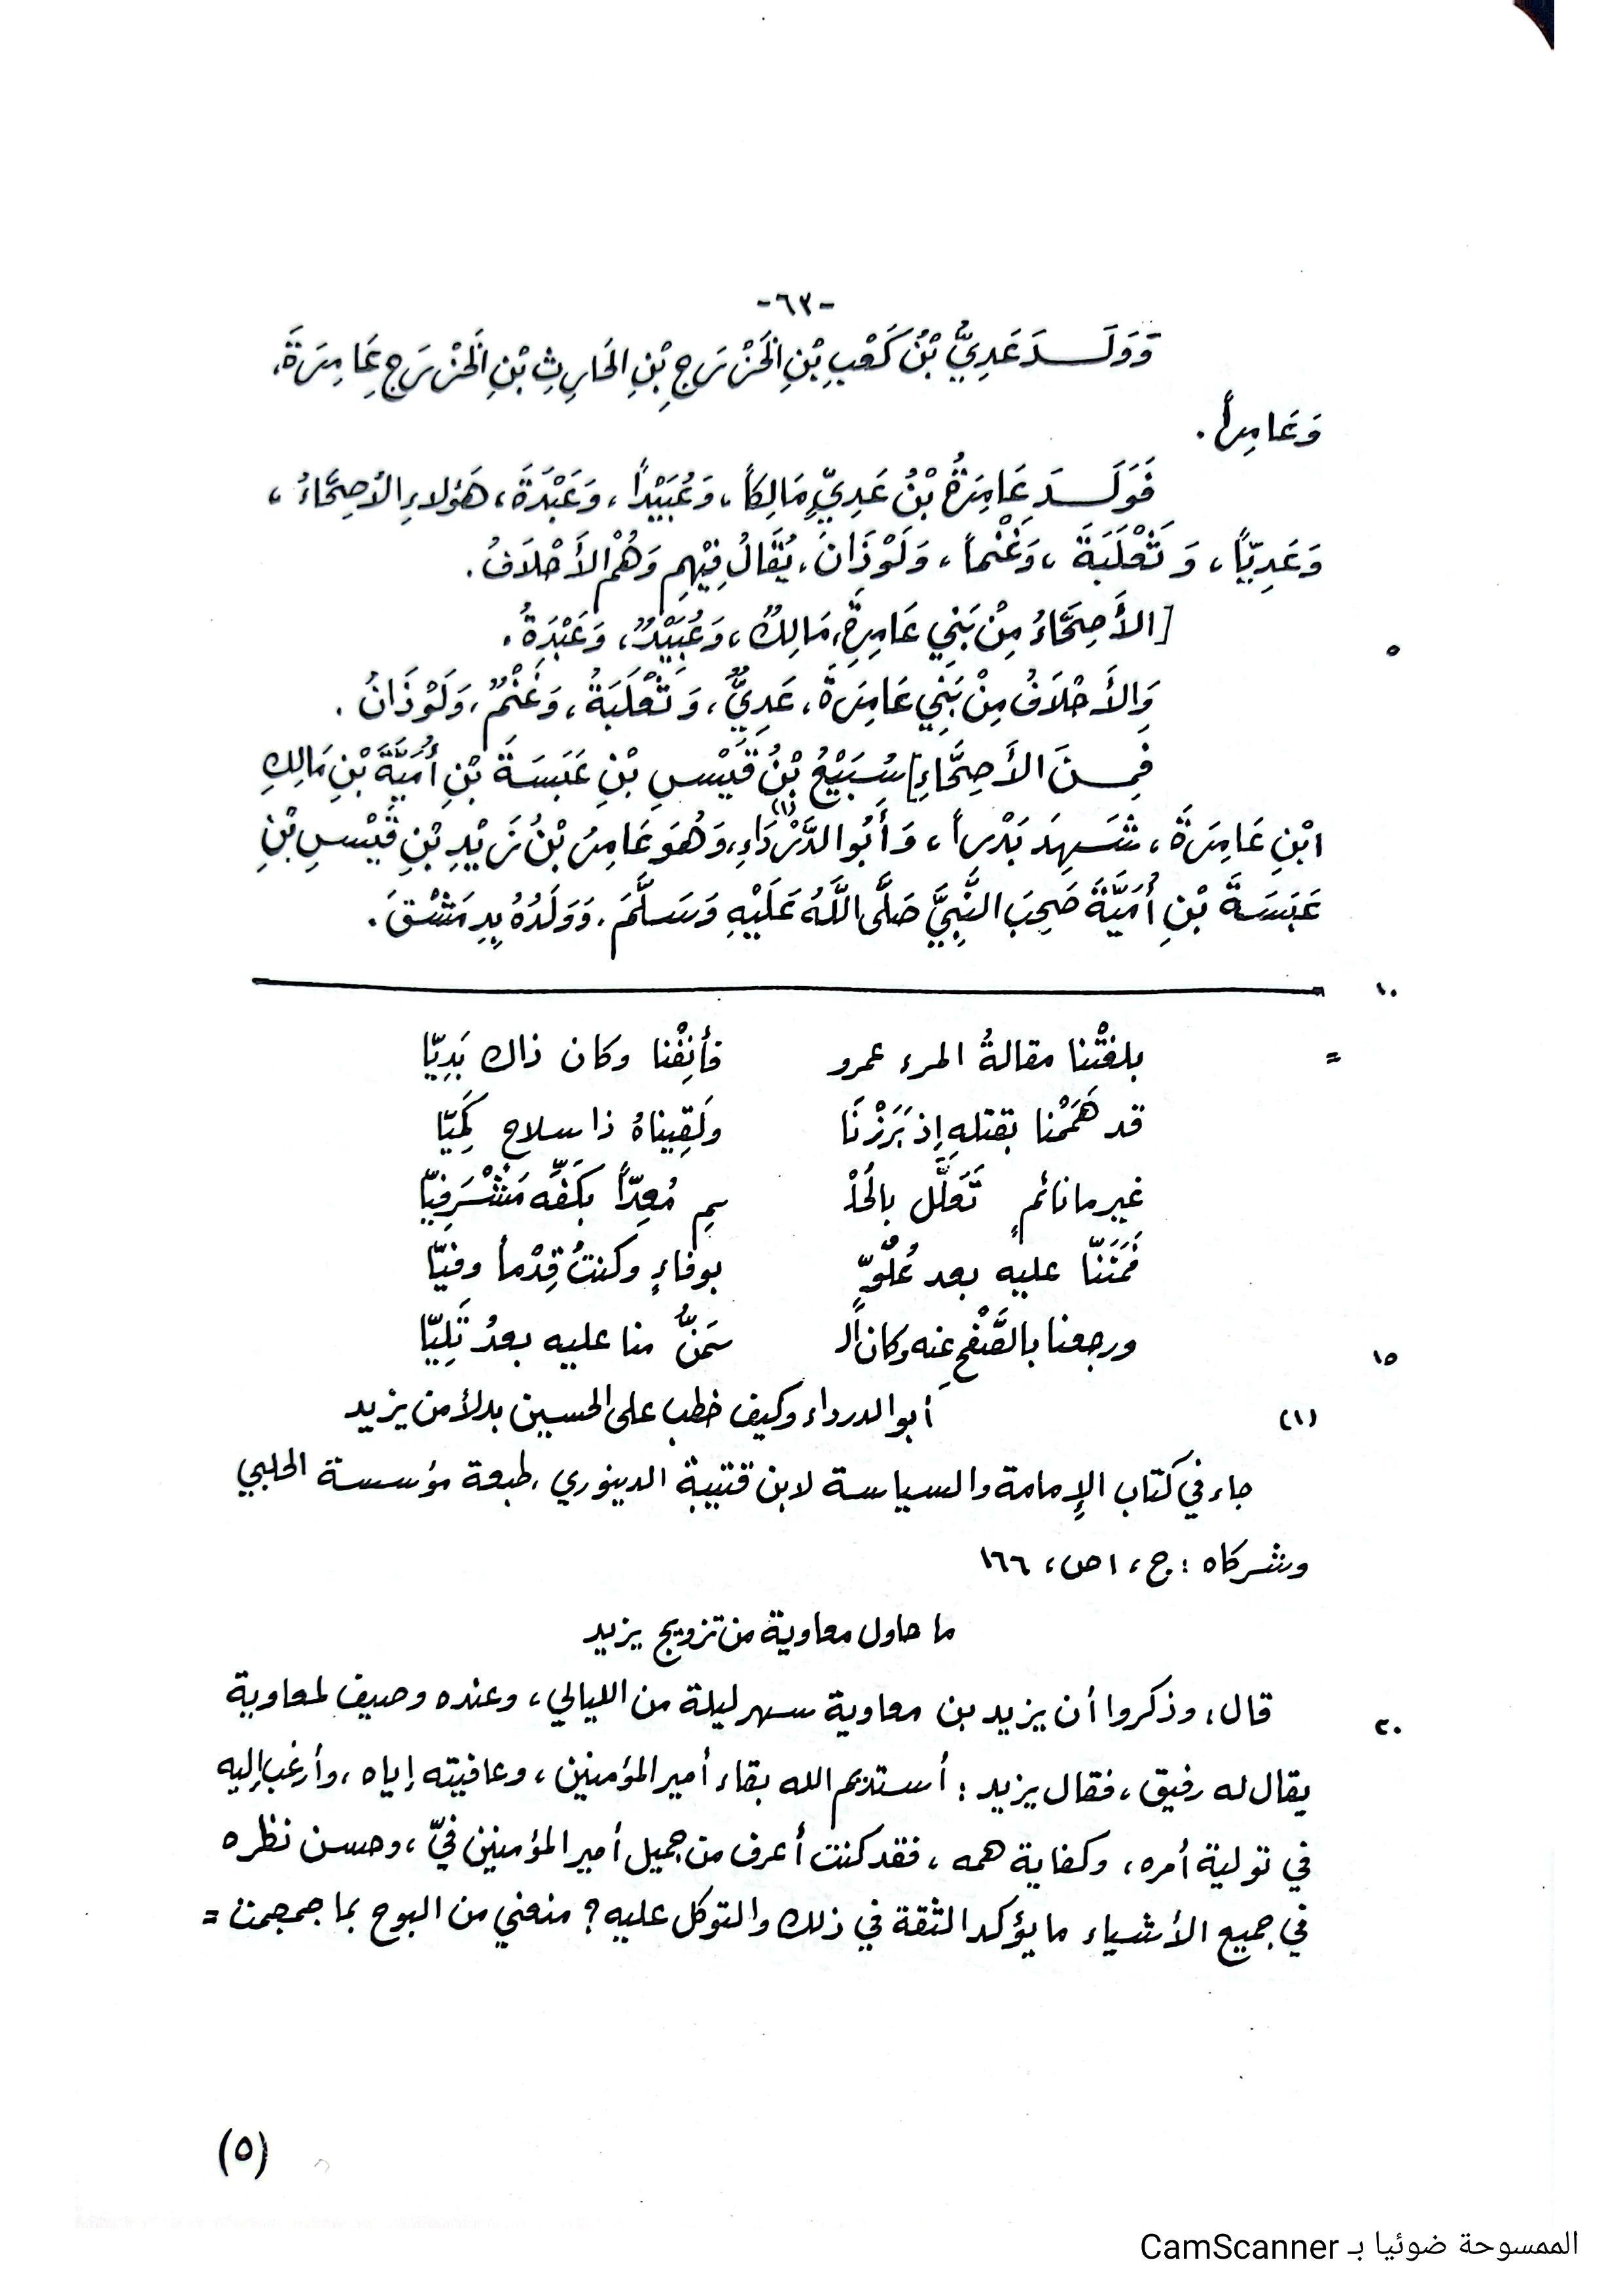 -٦٣-
وَوَلَـــدَ عَدِيُّ بْنُ كَعْبِ بْنِ الخَزْرَجِ بْنِ الحَارِثِ بْنِ الخَزْرَجِ عَامِرَةَ،
وَعَامِراً.
فَوَلَـــدَ عَامِرَةُ بْنُ عَدِيٍّ مَالِكاً، وَعُبَيْداً، وَعَبْدَةَ، هَؤلاءِ الأَصِحَّاءُ،
وَعَدِيّاً، وَثَعْلَبَةَ، وَغَنْماً، وَلَوْذَانَ، يُقَالُ فِيْهِم وَهُمْ الأَحْلَافُ.
[الأَصِحَّاءُ مِنْ بَنِي عَامِرَةَ، مَالِكٌ، وَعُبَيْدٌ، وَعَبْدَةُ.
٥
وَالأَحْلَافُ مِنْ بَنِي عَامِرَةَ، عَدِيٌّ، وَثَعْلَبَةُ، وَغَنْمٌ، وَلَوْذَانُ.
فَمِـــنَ الأَصِحَّاءِ] سُبَيْعُ بْنُ قَيْسِ بْنِ عَبَسَةَ بْنِ أُمَيَّةَ بْنِ مَالِكِ
ابْنِ عَامِرَةَ، شَـهِدَ بَدْراً، وَأَبُو الدَّرْدَاءِ(١)، وَهُوَ عَامِرُ بْنُ زَيْدِ بْنِ قَيْسِ بْنِ
عَبَسَةَ بْنِ أُمَيَّةَ صَحِبَ النَّبِيَّ صَلَّى اللَّهُ عَلَيْهِ وَسَلَّمَ. وَوَلَدُهُ بِدِمَشْقَ.
١٠
= بلغتْنا مقالةُ المرء عمرو فأنِفْنا وكان ذاك بَدِيّا
قد هَمَمْنا بقتلهِ إذ بَرَزْنَا ولَقِيناهُ ذا سلاحٍ كَمِيّا
غير مانائمٍ تَعَلَّل بالحُلْ ـمِ مُعِدّاً بكَفِّه مَشْرَفِيّا
فَمَنَنّا عليه بعد عُلُوٍّ بوفاءٍ وكنتُ قِدْماً وفيّا
ورجعنا بالصَّفْحِ عنه وكان الـ ـمَنُّ منا عليه بعدُ تَلِيّا
١٥
(١) أبو الدرداء وكيف خطب على الحسين بدلاً من يزيد
جاء في كتاب الإمامة والسياسة لابن قتيبة الدينوري، طبعة مؤسسة الحلبي
وشركاه : ج، ١ ص، ١٦٦
ما حاول معاوية من تزويج يزيد
قال: وذكروا أن يزيد بن معاوية سهر ليلة من الليالي، وعنده وصيف لمعاوية
٢٠
يقال له رفيق، فقال يزيد : أستديم الله بقاء أمير المؤمنين، وعافيته إياه، وأرغب إليه
في تولية أمره، وكفاية همه، فقد كنت أعرف من جميل أمير المؤمنين فيّ، وحسن نظره
في جميع الأشياء ما يؤكد الثقة في ذلك والتوكل عليه؟ منعني من البوح بما جمجمت =
(٥)
الممسوحة ضوئيا بـ CamScanner